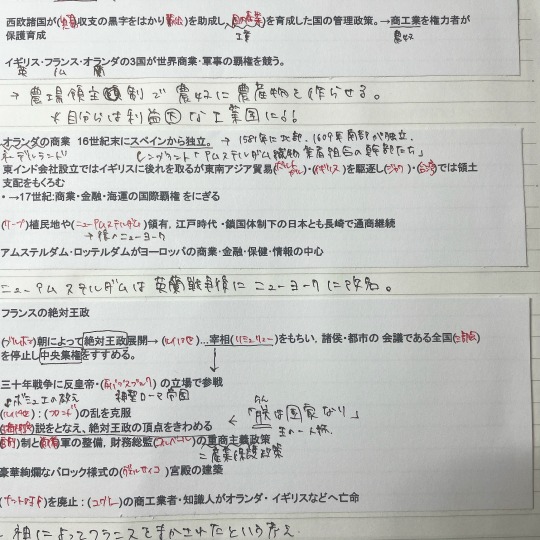 西欧諸国が(貿易)収支の黒字をはかり(輸出)を助成し、(国内産業)を育成した国の管理政策。→商工業を権力者が
工業 農奴
保護育成
イギリス・フランス・オランダの3国が世界商業・軍事の覇権を競う。
英 仏 蘭
→ 農場領主制で農奴に農産物を作らせる。
自分らは利益因な工業国になる
オランダの商業 16世紀末にスペインから独立。→ 1581年に北部、1609年南部が独立。
ネーデルラント レンブラント「アムステルダム織物業者組合の幹部たち」
東インド会社設立ではイギリスに後れを取るが東南アジア貿易(ポルトガル)・(イギリス)を駆逐し(ジャワ)・(台湾)では領土
支配をもくろむ
・→17世紀:商業・金融・海運の国際覇権 をにぎる
(ケープ)植民地や(ニューアムステルダム)領有、江戸時代・鎖国体制下の日本とも長崎で通商継続
→後のニューヨーク
アムステルダム・ロッテルダムがヨーロッパの商業・金融・保健・情報の中心
ニューアムステルダムは英蘭戦争後にニューヨークに改名。
フランスの絶対王政
(ブルボン)朝によって絶対王政展開→(ルイ13世)…宰相(リシュリュー)をもちい、諸侯・都市の 会議である全国(三部会)
を停止し中央集権をすすめる。
三十年戦争に反皇帝・(反ハプスブルク)の立場で参戦
ボシュエの教え 神聖ローマ帝国
(ルイ14世):(フロンド)の乱を克服 ← 「朕は国家なり」
ちん
王の一人称
(王権神授)説をとなえ、絶対王政の頂点をきわめる
制と(常備)軍の整備、財務総監(コルベール)の重商主義政策
=産業保護政策
豪華絢爛なバロック様式の(ヴェルサイユ)宮殿の建築
(ナントの勅令)を廃止:(ユグノー)の商工業者・知識人がオランダ・イギリスなどへ亡命
神によってフランスをまかされたという考え.